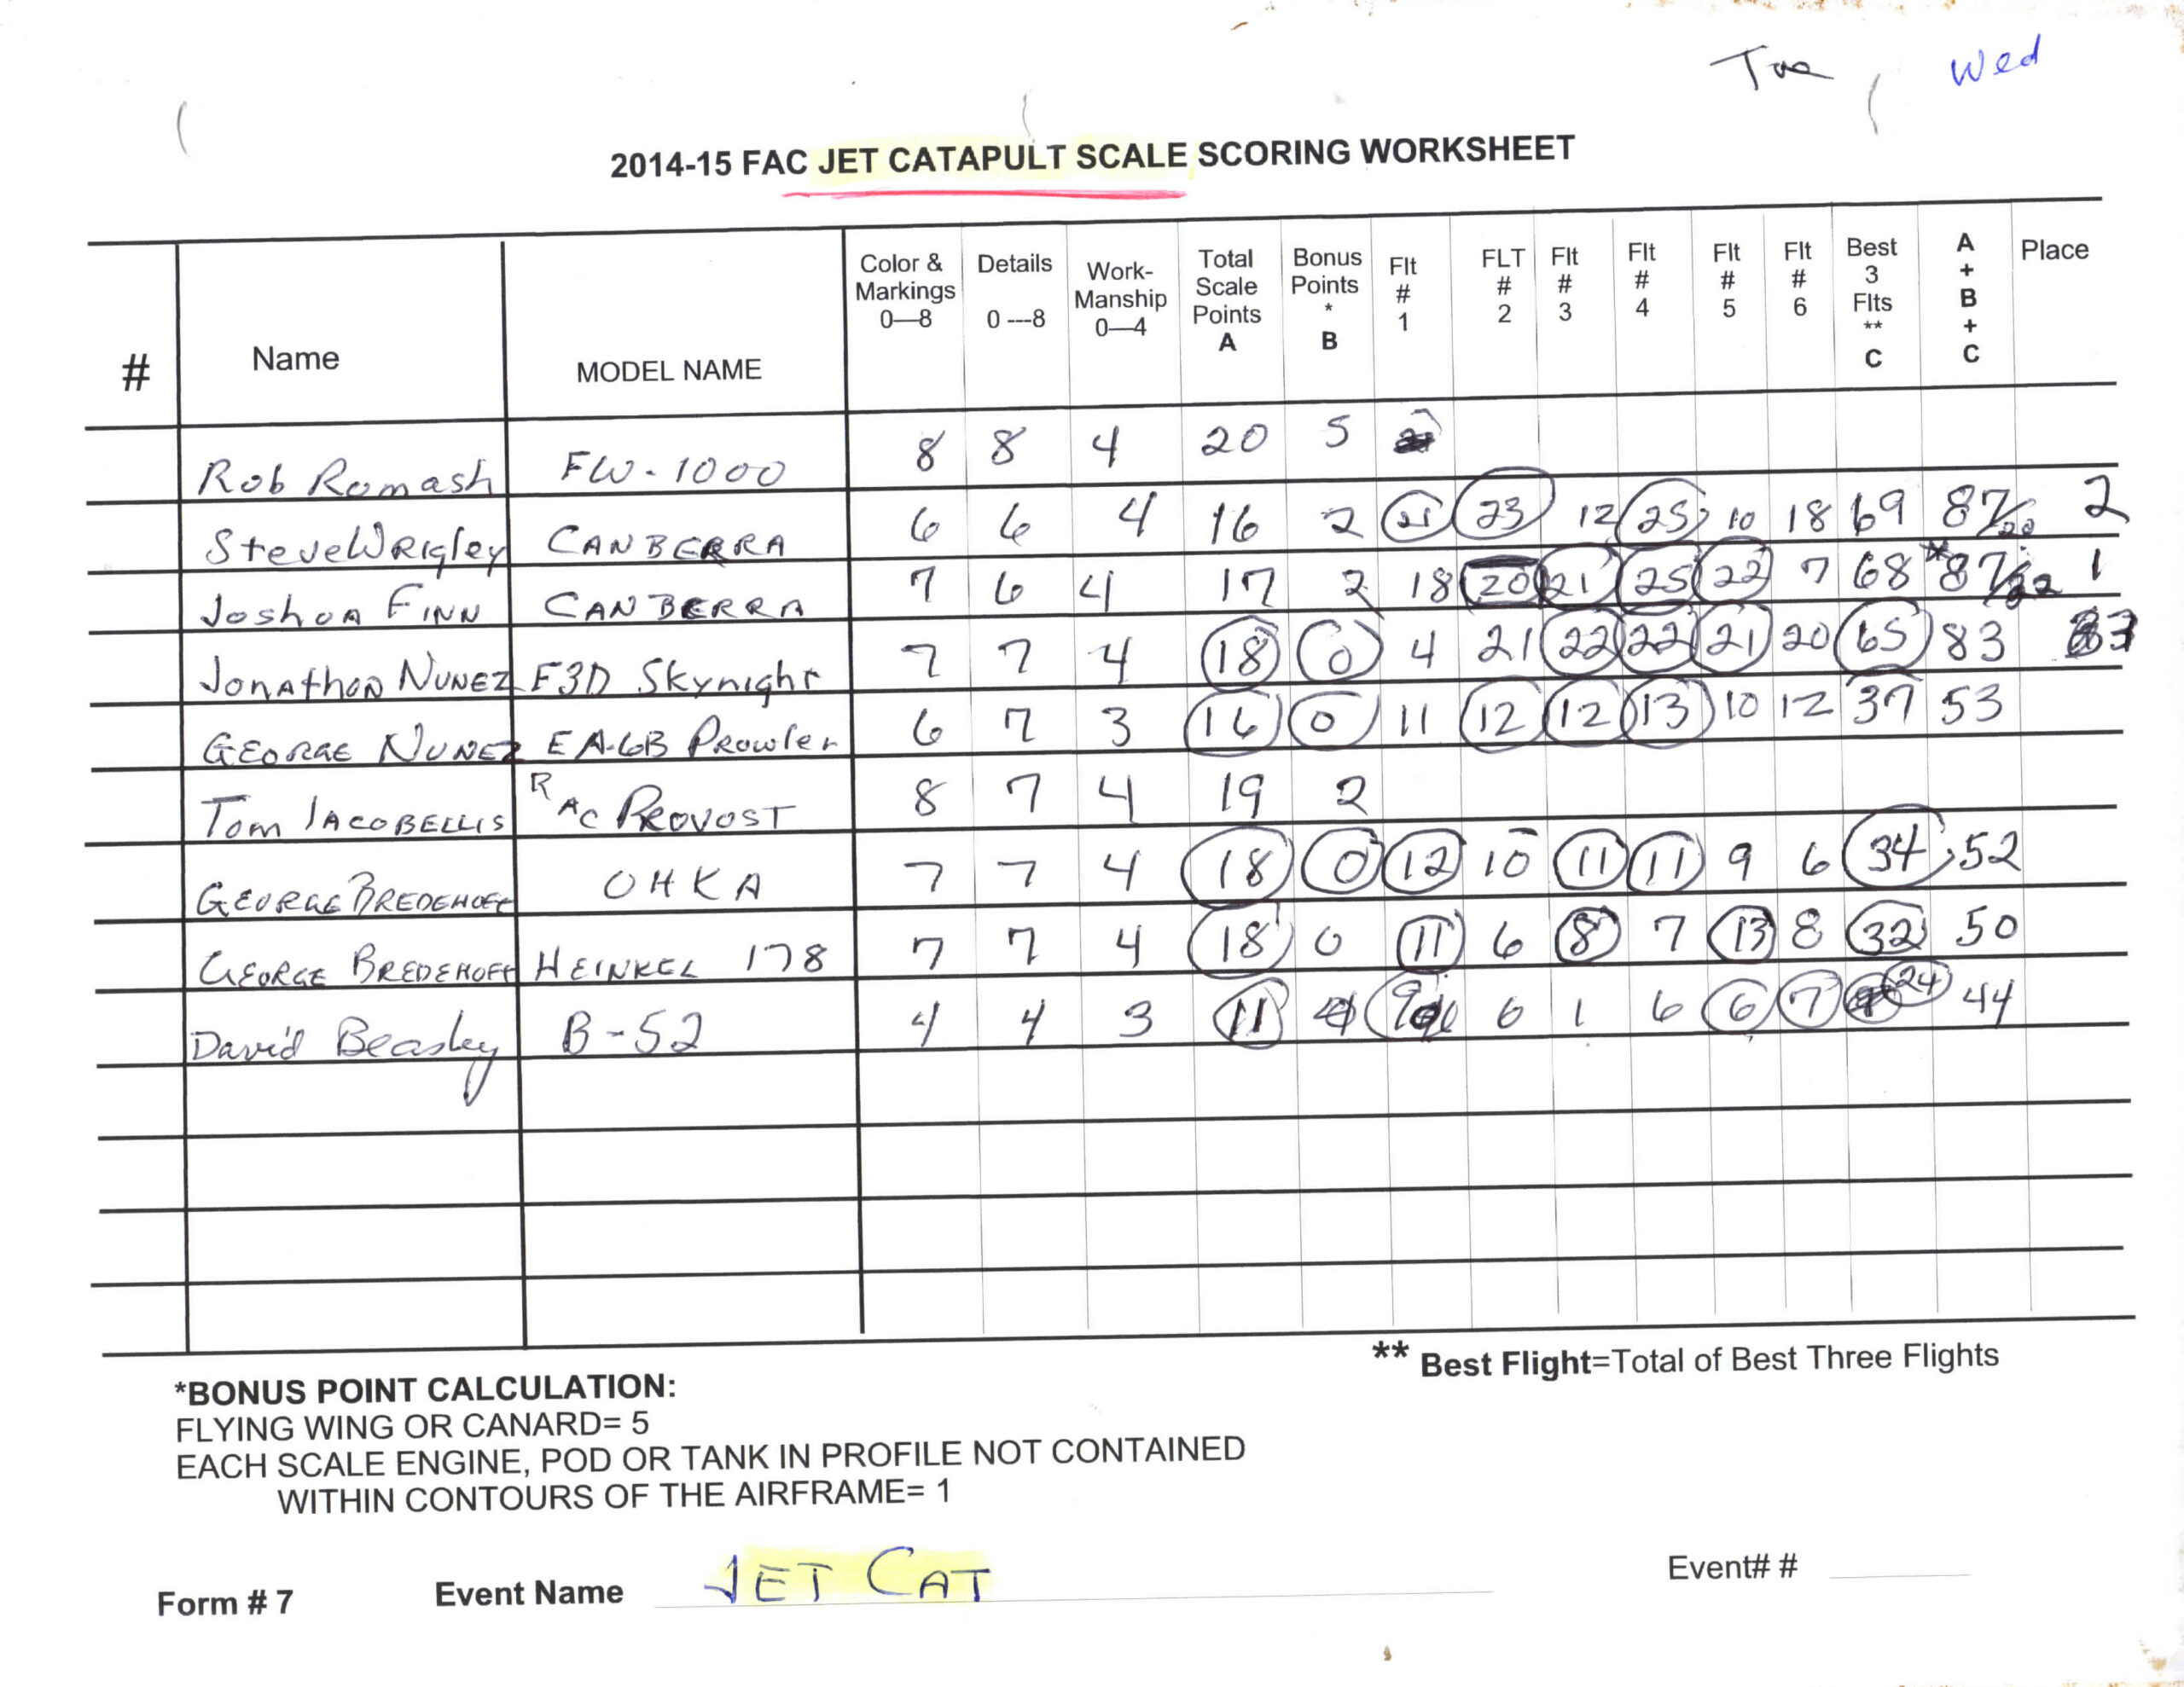 Tue Wed
2014-15 FAC JET CATAPULT SCALE SCORING WORKSHEET
# Name MODEL NAME Color & Markings 0—8 Details 0 ---8 Work- Manship 0—4 Total Scale Points A Bonus Points * B Flt # 1 FLT # 2 Flt # 3 Flt # 4 Flt # 5 Flt # 6 Best 3 Flts ** C A + B + C Place
Rob Romash FW-1000 8 8 4 20 5
Steve Wrigley CANBERRA 6 6 4 16 2 21 23 12 25 10 18 69 87/20 2
Joshua Finn CANBERRA 7 6 4 17 2 18 20 21 25 22 7 68 *87/22 1
Jonathon Nunez F3D Skynight 7 7 4 18 0 4 21 22 22 21 20 65 83 3
George Nunez EA-6B Prowler 6 7 3 16 0 11 12 12 13 10 12 37 53
Tom Iacobellis RAC Provost 8 7 4 19 2
George Bredehoft OHKA 7 7 4 18 0 12 10 11 11 9 6 34 52
George Bredehoft HEINKEL 178 7 7 4 18 0 11 6 8 7 13 8 32 50
David Beasley B-52 4 4 3 11 6 1 6 6 7 24 44
** Best Flight=Total of Best Three Flights
*BONUS POINT CALCULATION:
FLYING WING OR CANARD= 5
EACH SCALE ENGINE, POD OR TANK IN PROFILE NOT CONTAINED
WITHIN CONTOURS OF THE AIRFRAME= 1
Form # 7 Event Name JET CAT Event# #